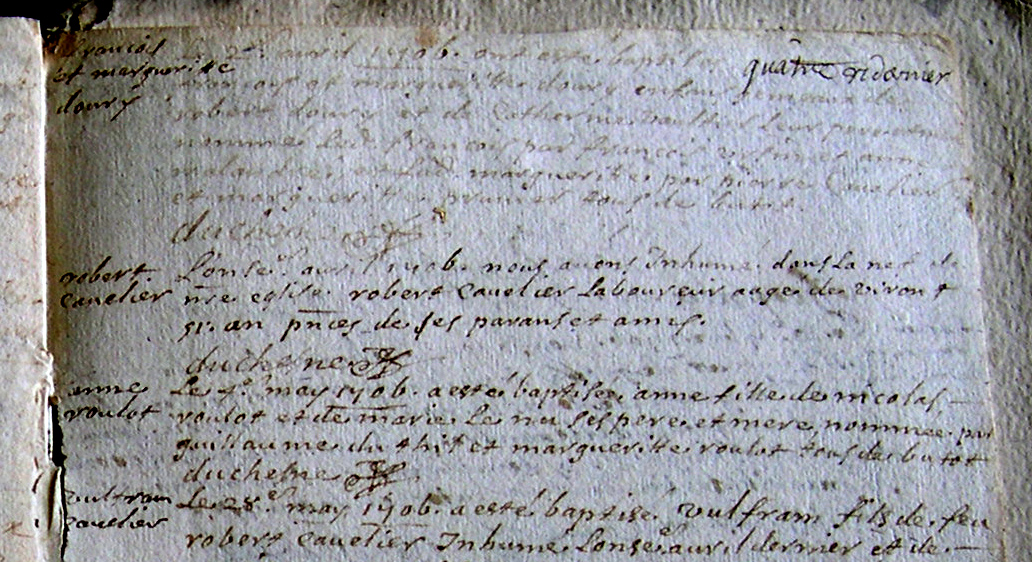 francois
et margueritte
doury
le 2e avril 1706. ont esté baptisés
quatre vi denier
francois et margueritte doury enfans jumeaux de
robert doury et de Catherine leurs pere et mere
nommé led. francois par francois et anne
et lad. margueritte par pierre Cavelier
et margueritte prunier tous de butot.
duchesne
robert
Cavelier
L'onse.e avril 1706. nous avons Inhumé. dans la nef de
nre eglise. robert Cavelier Laboureur aagé de viron
51. an pnces de ses parans et amis.
duchesne
anne
roulot
Le 4e. may 1706. a esté baptisée anne fille de nicolas
roulot et de marie Le nu ses pere et mere nommée par
guillaume du thil et margueritte roulot tous de butot
duchesne
vulfran
Cavelier
Le 28e. may 1706. a esté baptisé vulfram fils de feu
robert Cavelier Inhumé L'onsee avril dernier et de